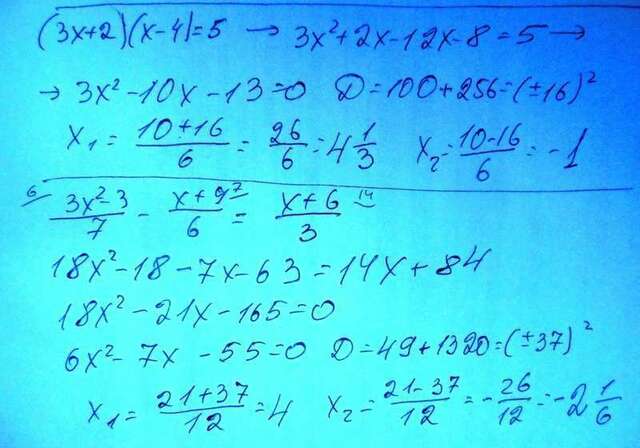 (3x+2)(x-4)=5 → 3x²+2x-12x-8=5 →
→ 3x²-10x-13=0 D=100+256=(±16)²
x₁= (10+16)/6 = 26/6 = 4 1/3 x₂= (10-16)/6 = -1
6 (3x²-3)/7 - (x+9)/6 7 = (x+6)/3 14
18x²-18-7x-63=14x+84
18x²-21x-165=0
6x²-7x-55=0 D=49+1320=(±37)²
x₁= (21+37)/12 = 4 x₂= (21-37)/12 = -26/12 = -2 1/6